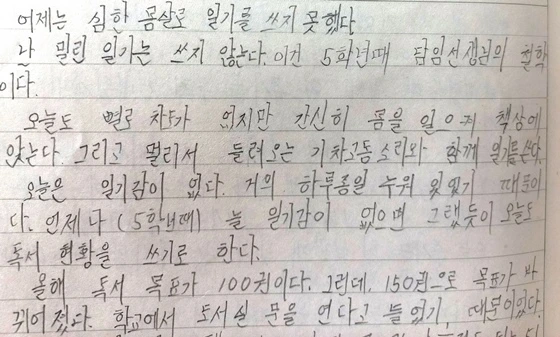 어제는 심한 몸살로 일기를 쓰지 못했다
난 밀린 일기는 쓰지 않는다. 이건 5학년때 담임선생님의 철학
이다.
오늘도 별로 차도가 없지만 간신히 몸을 일으켜 책상에
앉는다. 그리고 멀리서 들려오는 기차고동소리와 함께 일기를쓴다.
오늘은 일기감이 없다. 거의 하루종일 누워 있었기 때문이
다. 언제나 (5학년때) 늘 일기감이 없으면 그랬듯이 오늘도
독서 현황을 쓰기로 한다.
올해 독서 목표가 100권이다. 그런데, 150권으로 목표가 바
뀌어졌다. 학교에서 도서실 문을 연다고 들었기, 때문이었다.